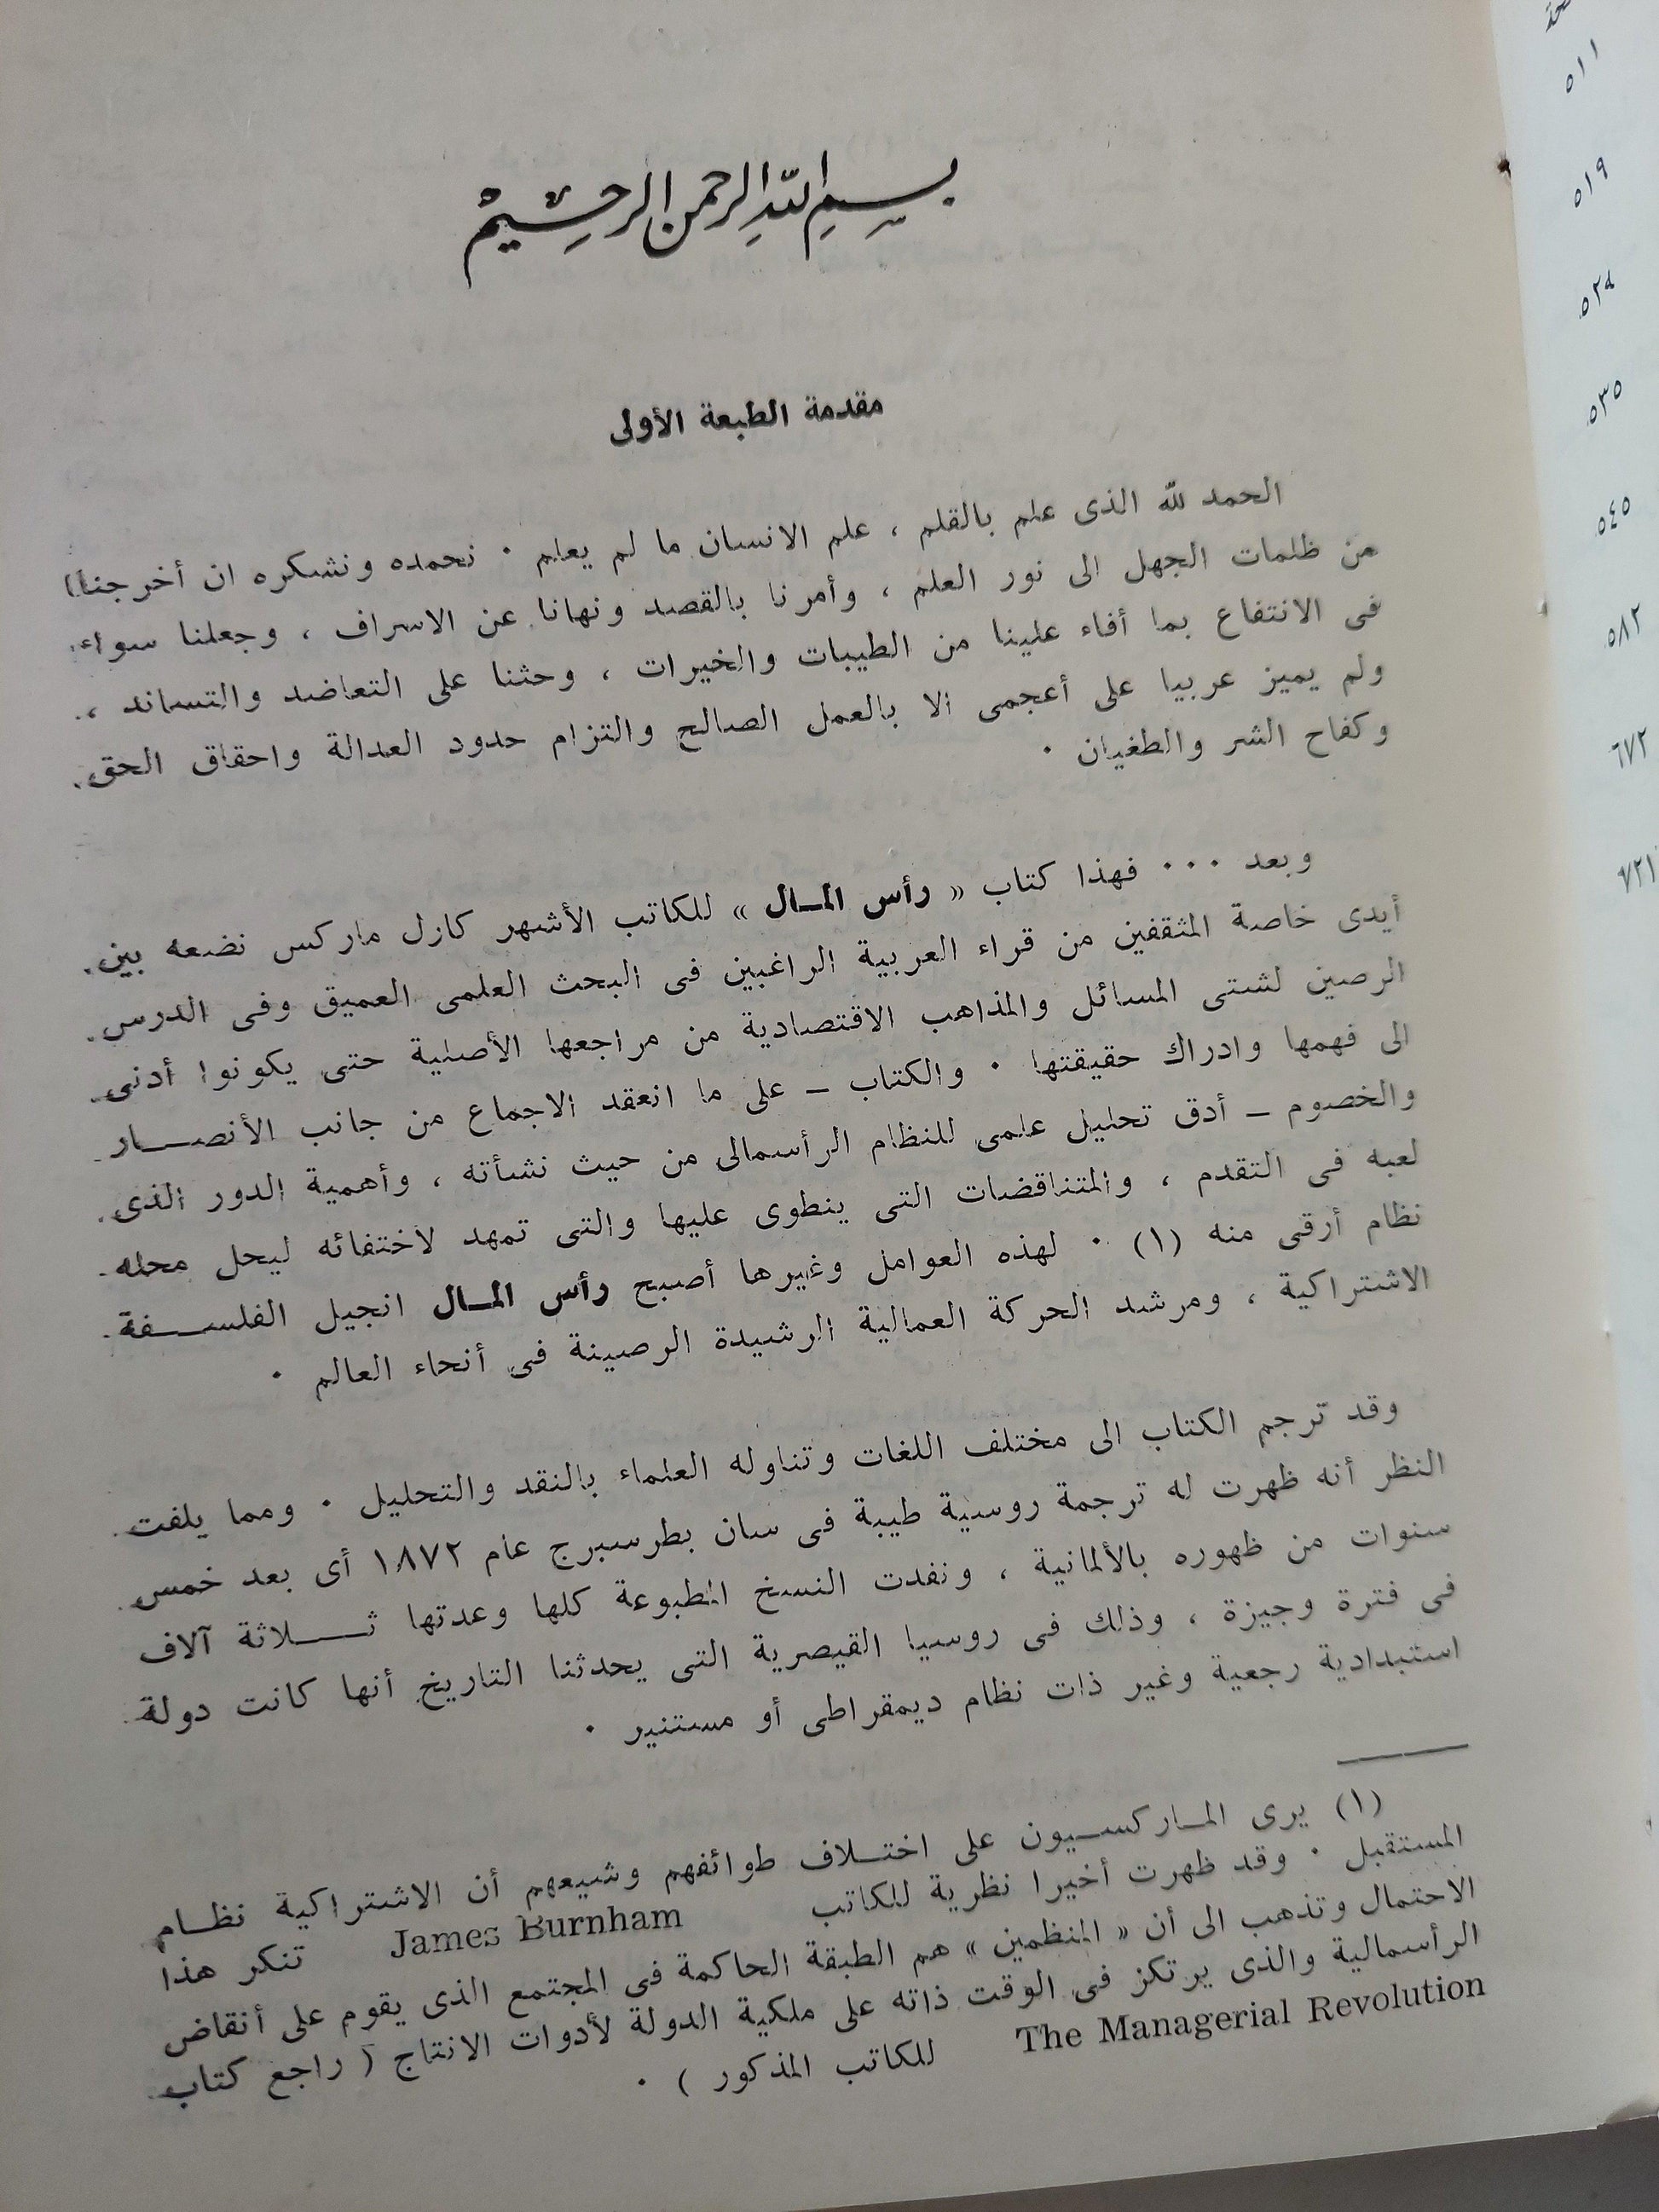 بسم الله الرحمن الرحيم
مقدمة الطبعة الأولى
الحمد لله الذى علم بالقلم ، علم الانسان ما لم يعلم ٠ نحمده ونشكره ان أخرجنا
من ظلمات الجهل الى نور العلم ، وأمرنا بالقصد ونهانا عن الاسراف ، وجعلنا سواء
فى الانتفاع بما أفاء علينا من الطيبات والخيرات ، وحثنا على التعاضد والتساند ،
ولم يميز عربيا على أعجمى الا بالعمل الصالح والتزام حدود العدالة واحقاق الحق
وكفاح الشر والطغيان ٠
وبعد ٠٠٠ فهذا كتاب « رأس المـال » للكاتب الأشهر كارل ماركس نضعه بين
أيدى خاصة المثقفين من قراء العربية الراغبين فى البحث العلمى العميق وفى الدرس
الرصين لشتى المسائل والمذاهب الاقتصادية من مراجعها الأصلية حتى يكونوا أدنى
الى فهمها وادراك حقيقتها ٠ والكتاب – على ما انعقد الاجماع من جانب الأنصـــار
والخصوم – أدق تحليل علمى للنظام الرأسمالى من حيث نشأته ، وأهمية الدور الذى
لعبه فى التقدم ، والمتناقضات التى ينطوى عليها والتى تمهد لاختفائه ليحل محله
نظام أرقى منه (١) ٠ لهذه العوامل وغيرها أصبح رأس المـال انجيل الفلســـفة
الاشتراكية ، ومرشد الحركة العمالية الرشيدة الرصينة فى أنحاء العالم ٠
وقد ترجم الكتاب الى مختلف اللغات وتناوله العلماء بالنقد والتحليل ٠ ومما يلفت
النظر أنه ظهرت له ترجمة روسية طيبة فى سان بطرسبرج عام ١٨٧٢ أى بعد خمس
سنوات من ظهوره بالألمانية ، ونفدت النسخ المطبوعة كلها وعدتها ثـــلاثة آلاف
فى فترة وجيزة ، وذلك فى روسيا القيصرية التى يحدثنا التاريخ أنها كانت دولة
استبدادية رجعية وغير ذات نظام ديمقراطى أو مستنير ٠
(١) يرى المـاركسـيون على اختـلاف طوائفهم وشيعهم أن الاشتراكية نظـام
المستقبل ٠ وقد ظهرت أخيرا نظرية للكاتب James Burnham تنكر هذا
الاحتمال وتذهب الى أن « المنظمين » هم الطبقة الحاكمة فى المجتمع الذى يقوم على أنقاض
الرأسمالية والذى يرتكز فى الوقت ذاته على ملكية الدولة لأدوات الانتاج ( راجع كتاب
The Managerial Revolution للكاتب المذكور ) ٠
٥١١
٥١٩
٥٢٤
٥٣٥
٥٤٥
٥٨٢
٦٧٢
٧٢١